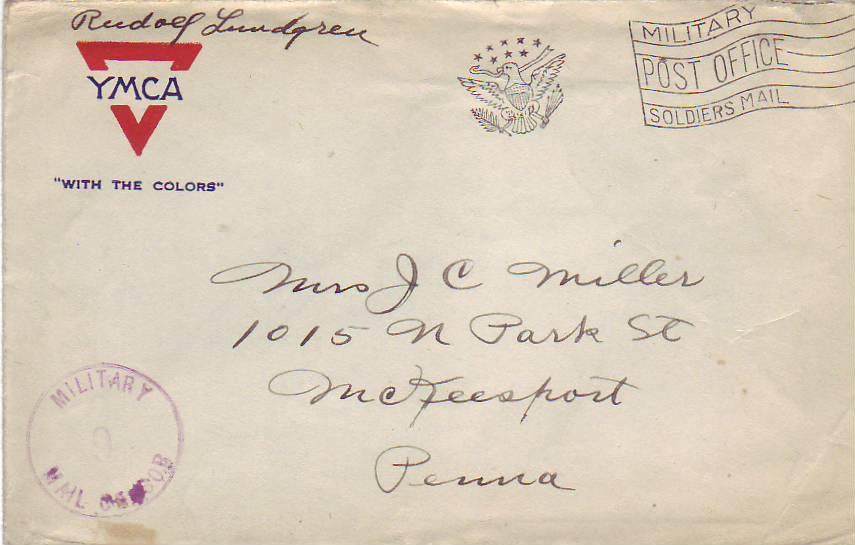 Rudolf Lundgren
YMCA
"WITH THE COLORS"
MILITARY
POST OFFICE
SOLDIERS MAIL
Mrs J C Miller
1015 N Park St
McKeesport
Penna
MILITARY
MAIL